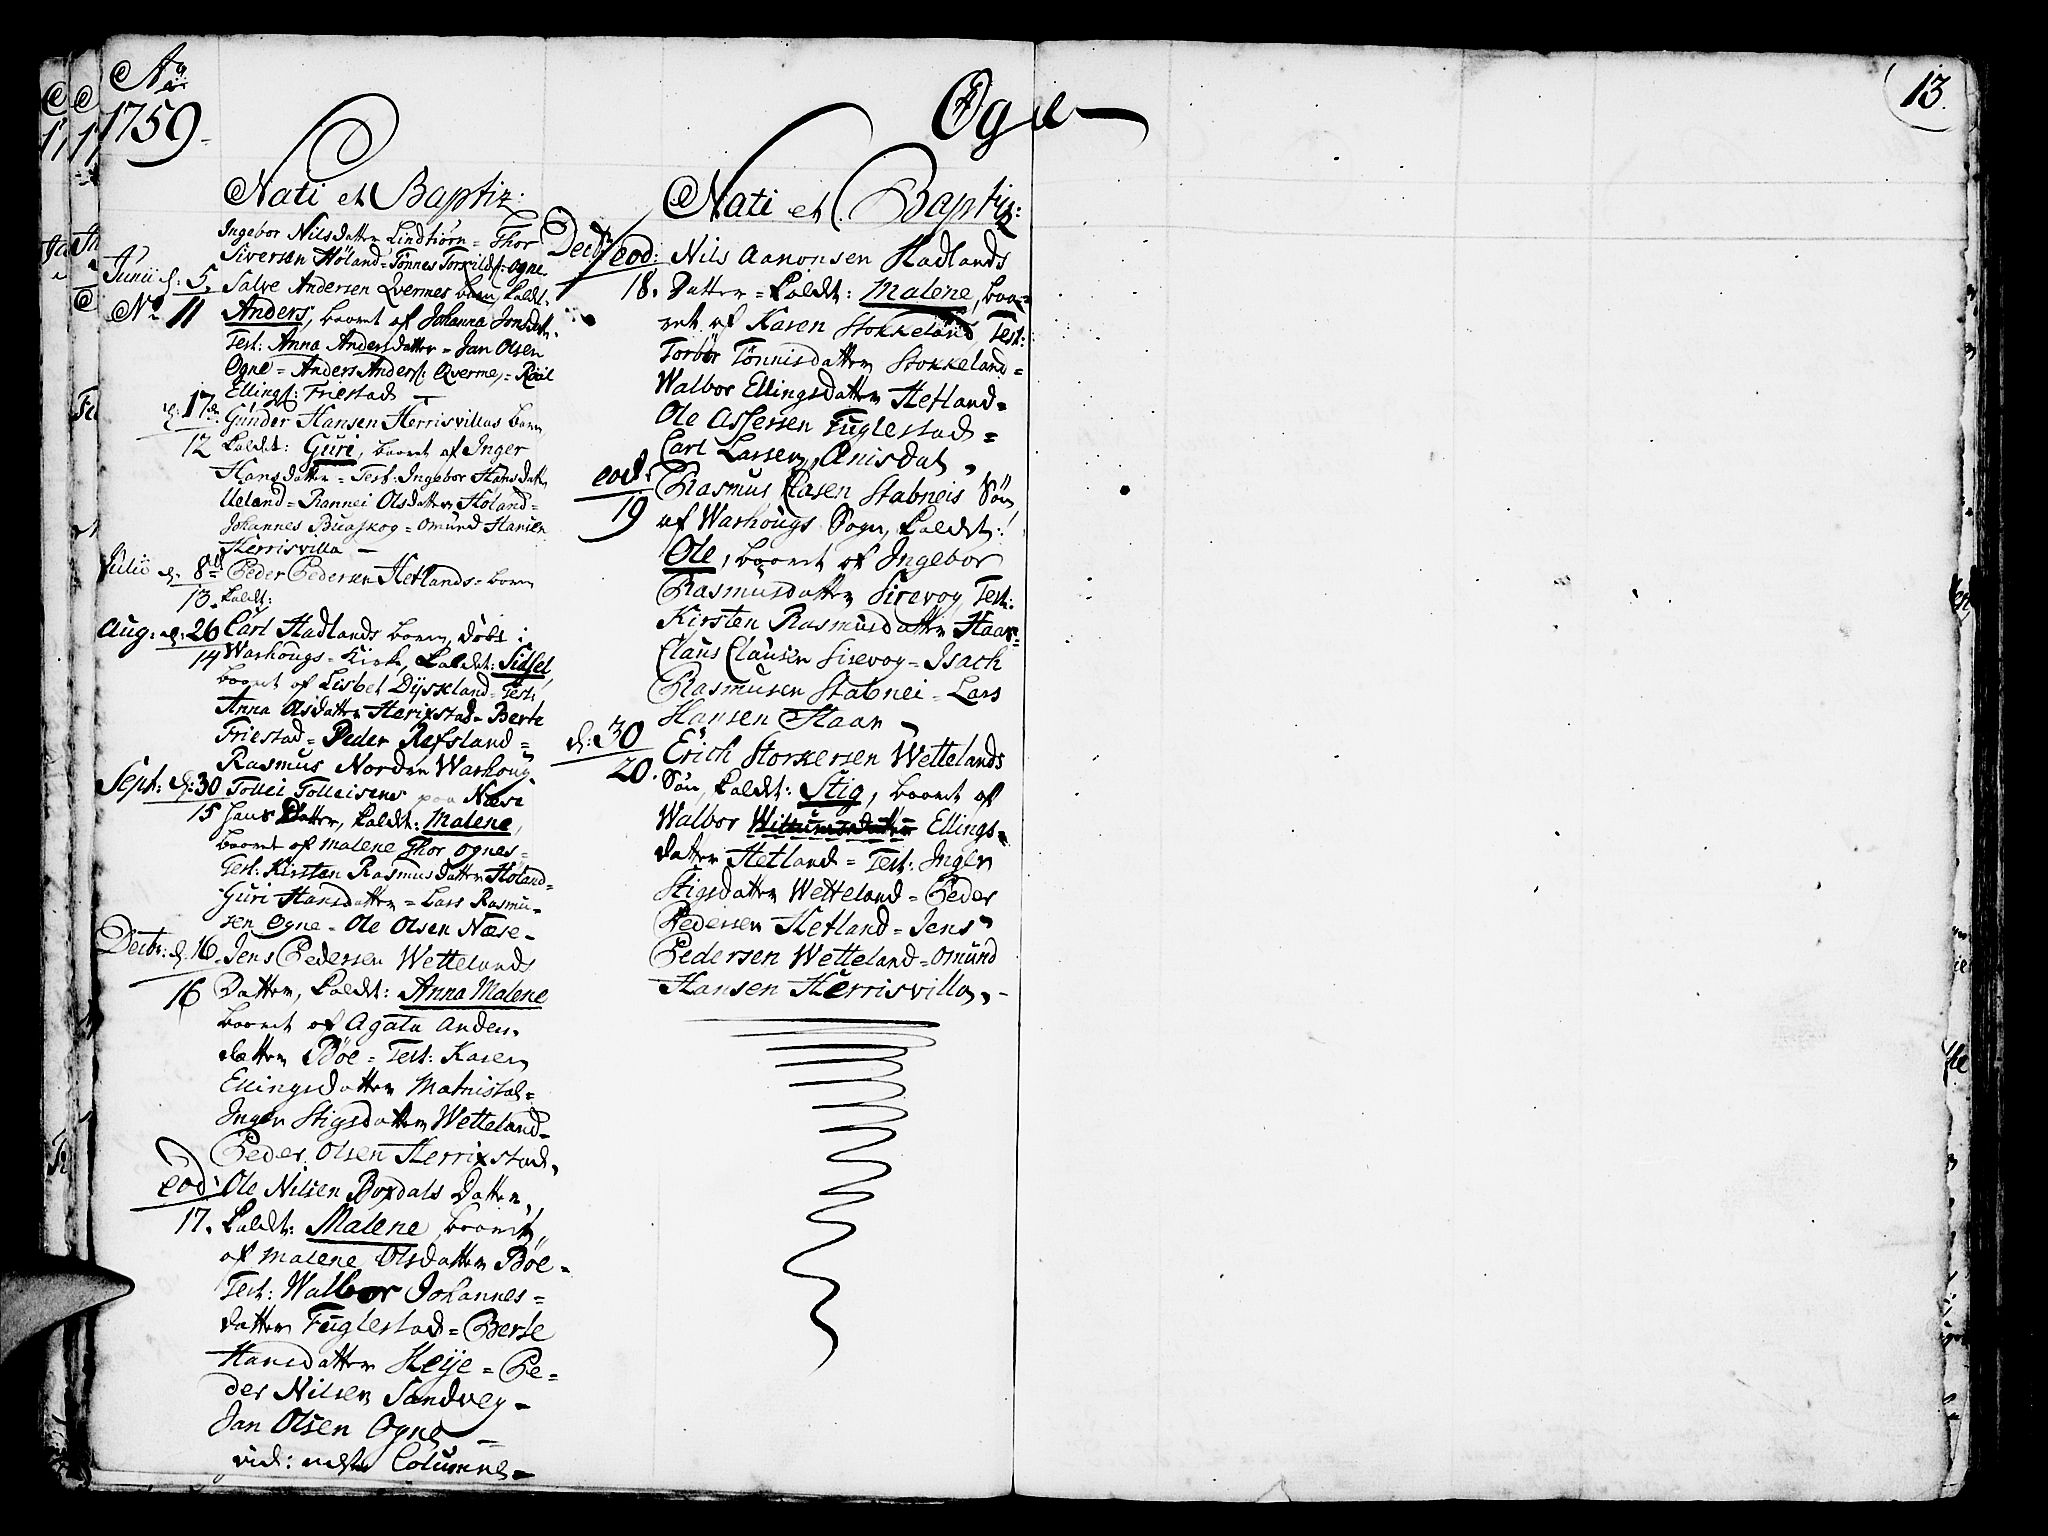 Aº
1759
Ogne
13.
Nati et Baptiz:
Ingebor Nilsdatter Lindtiørn = Thor
Siversen Høland = Tønnes Torkilds: Ogne
Junii d: 5. Salve Andersen Qvermes barn, kaldt
No 11 Anders, baaret af Johanna Jonsdatt.
Test: Anna Andersdatter = Jan Olsen
Ogne = Anders Anders: Qverme, =
Ellings: Friestad
d: 17 Gunder Hansen Herrisvillas barn
12 kaldt: Guri, baaret af Inger
Hansdatter = Test: Ingebor Hansdatt
Ueland = Rannei Olsdatter Høland =
Johannes Buaskog = Omund Hansen
Herrisvilla
Julii d: 8 Peder Pedersen Hetlands barn
13. kaldt:
Aug: d: 26 Carl Hadlands barn, døbt i
14 Warhougs Kirke, kaldet: Sidsel,
baaret af Lisbet Dysseland = Test:
Anna Olsdatter Herixstad = Berte
Friestad = Peder Refsland =
Rasmus Norden Warhoug.
Sept: d: 30 Tollei Tolleisens paa Næse
15 hans Datter, kaldt: Malene,
baaret af Malene Thor Ognes =
Test: Kirsten Rasmusdatter Høland =
Guri Hansdatter = Lars Rasmu-
sen Ogne = Ole Olsen Næse =
Decbr: d. 16. Jens Pedersen Wettelands
16 Datter, kaldt: Anna Malene
baaret af Agata Anders
datter Bøe = Test: Karen
Ellingsdatter Matnistal =
Inger Stigsdatter Wetteland =
Peder Olsen Herrixstad,
eod: Ole Nilsen Boxdals Datter,
17. kaldt: Malene, baaret,
af Malene Olsdatter Bøe =
Test: Walbor Johannes =
datter Fuglestad = Berte
Hansdatter Heÿe = Pe-
der Nilsen Sandveg =
Jan Olsen Ogne
vid: neste Columne
Nati et Baptiz:
Decbr eod: Nils Aanonsen Hadlands
18. Datter = kaldt: Malene, baa-
ret af Karen Stokkeland, Test:
Torbor Tønnisdatter Stokkeland =
Walbor Ellingsdatter Hetland =
Ole Assersen Fuglestad =
Carl Larsen, Ånisdal,
eod: Rasmus Clasen Stabneis Søn
19 af Warhougs Sogn, kaldt:
Ole, baaret af Ingebor
Rasmusdatter Sirevog, Test:
Kirsten Rasmusdatter Haar =
Claus Clausen Sirevog = Isach
Rasmusen Stabnei = Lars
Hansen Haar
d: 30 Erich Storkersen Wettelands
20. Søn, kaldt: Stig, baaret af
Walbor Ellings-
datter Hetland = Test: Inger
Stigsdatter Wetteland = Peder
Pedersen Hetland = Jens
Pedersen Wetteland = Omund
Hansen Herrisvilla,